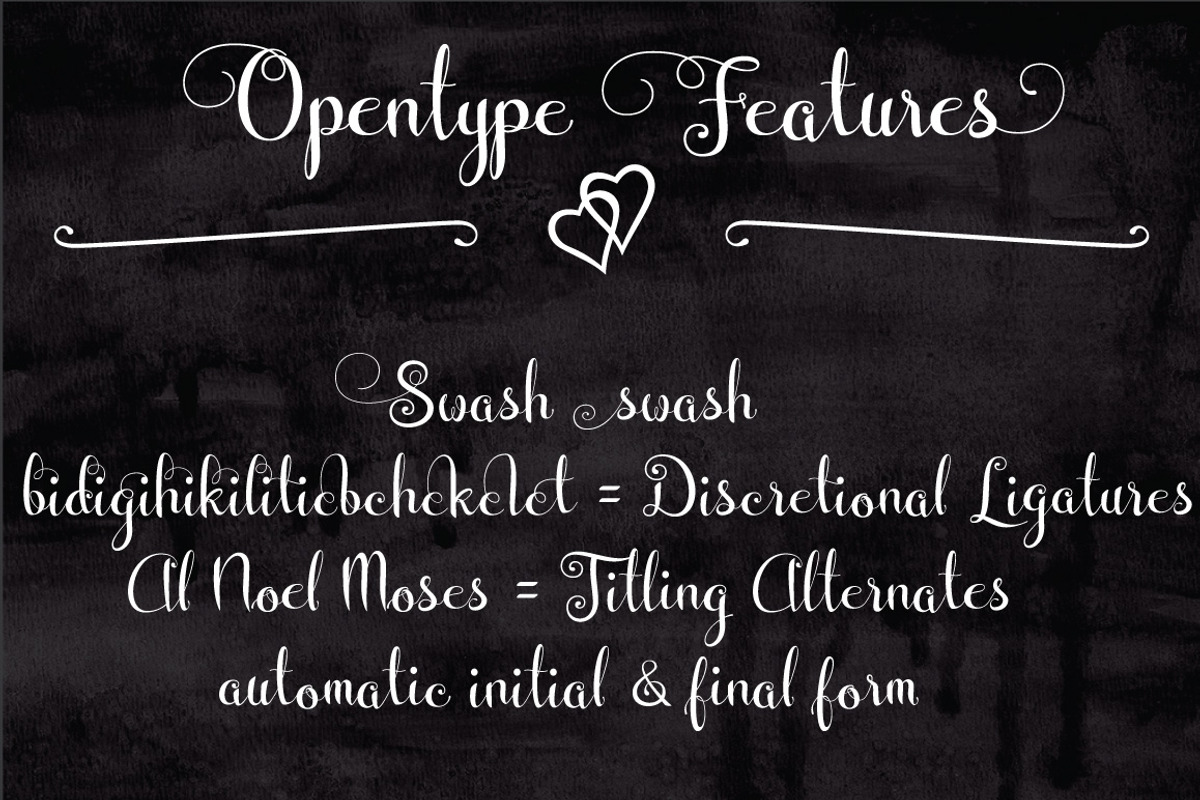 Opentype Features
Swash swash
bidigihikiliticbchckclct = Discretional Ligatures
Al Noel Moses = Titling Alternates
automatic initial & final form